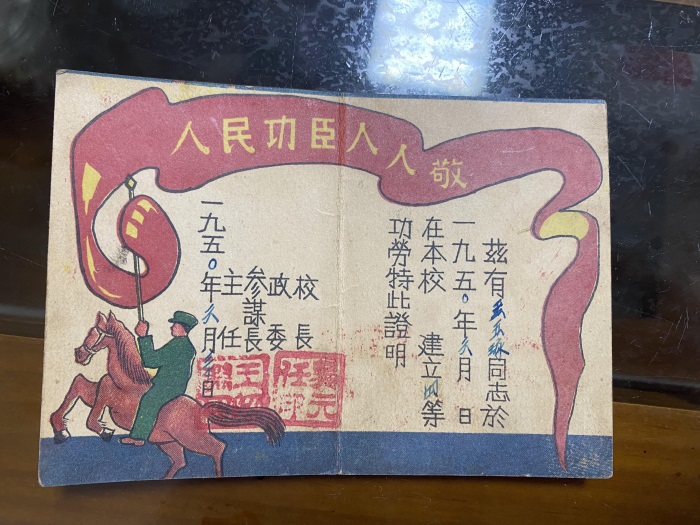 人民功臣人人敬
茲有 同志於
一九五〇年六月 日
在本校 建立四等
功勞特此證明
校長
政委
參謀長
主任
一九五〇年六月 日